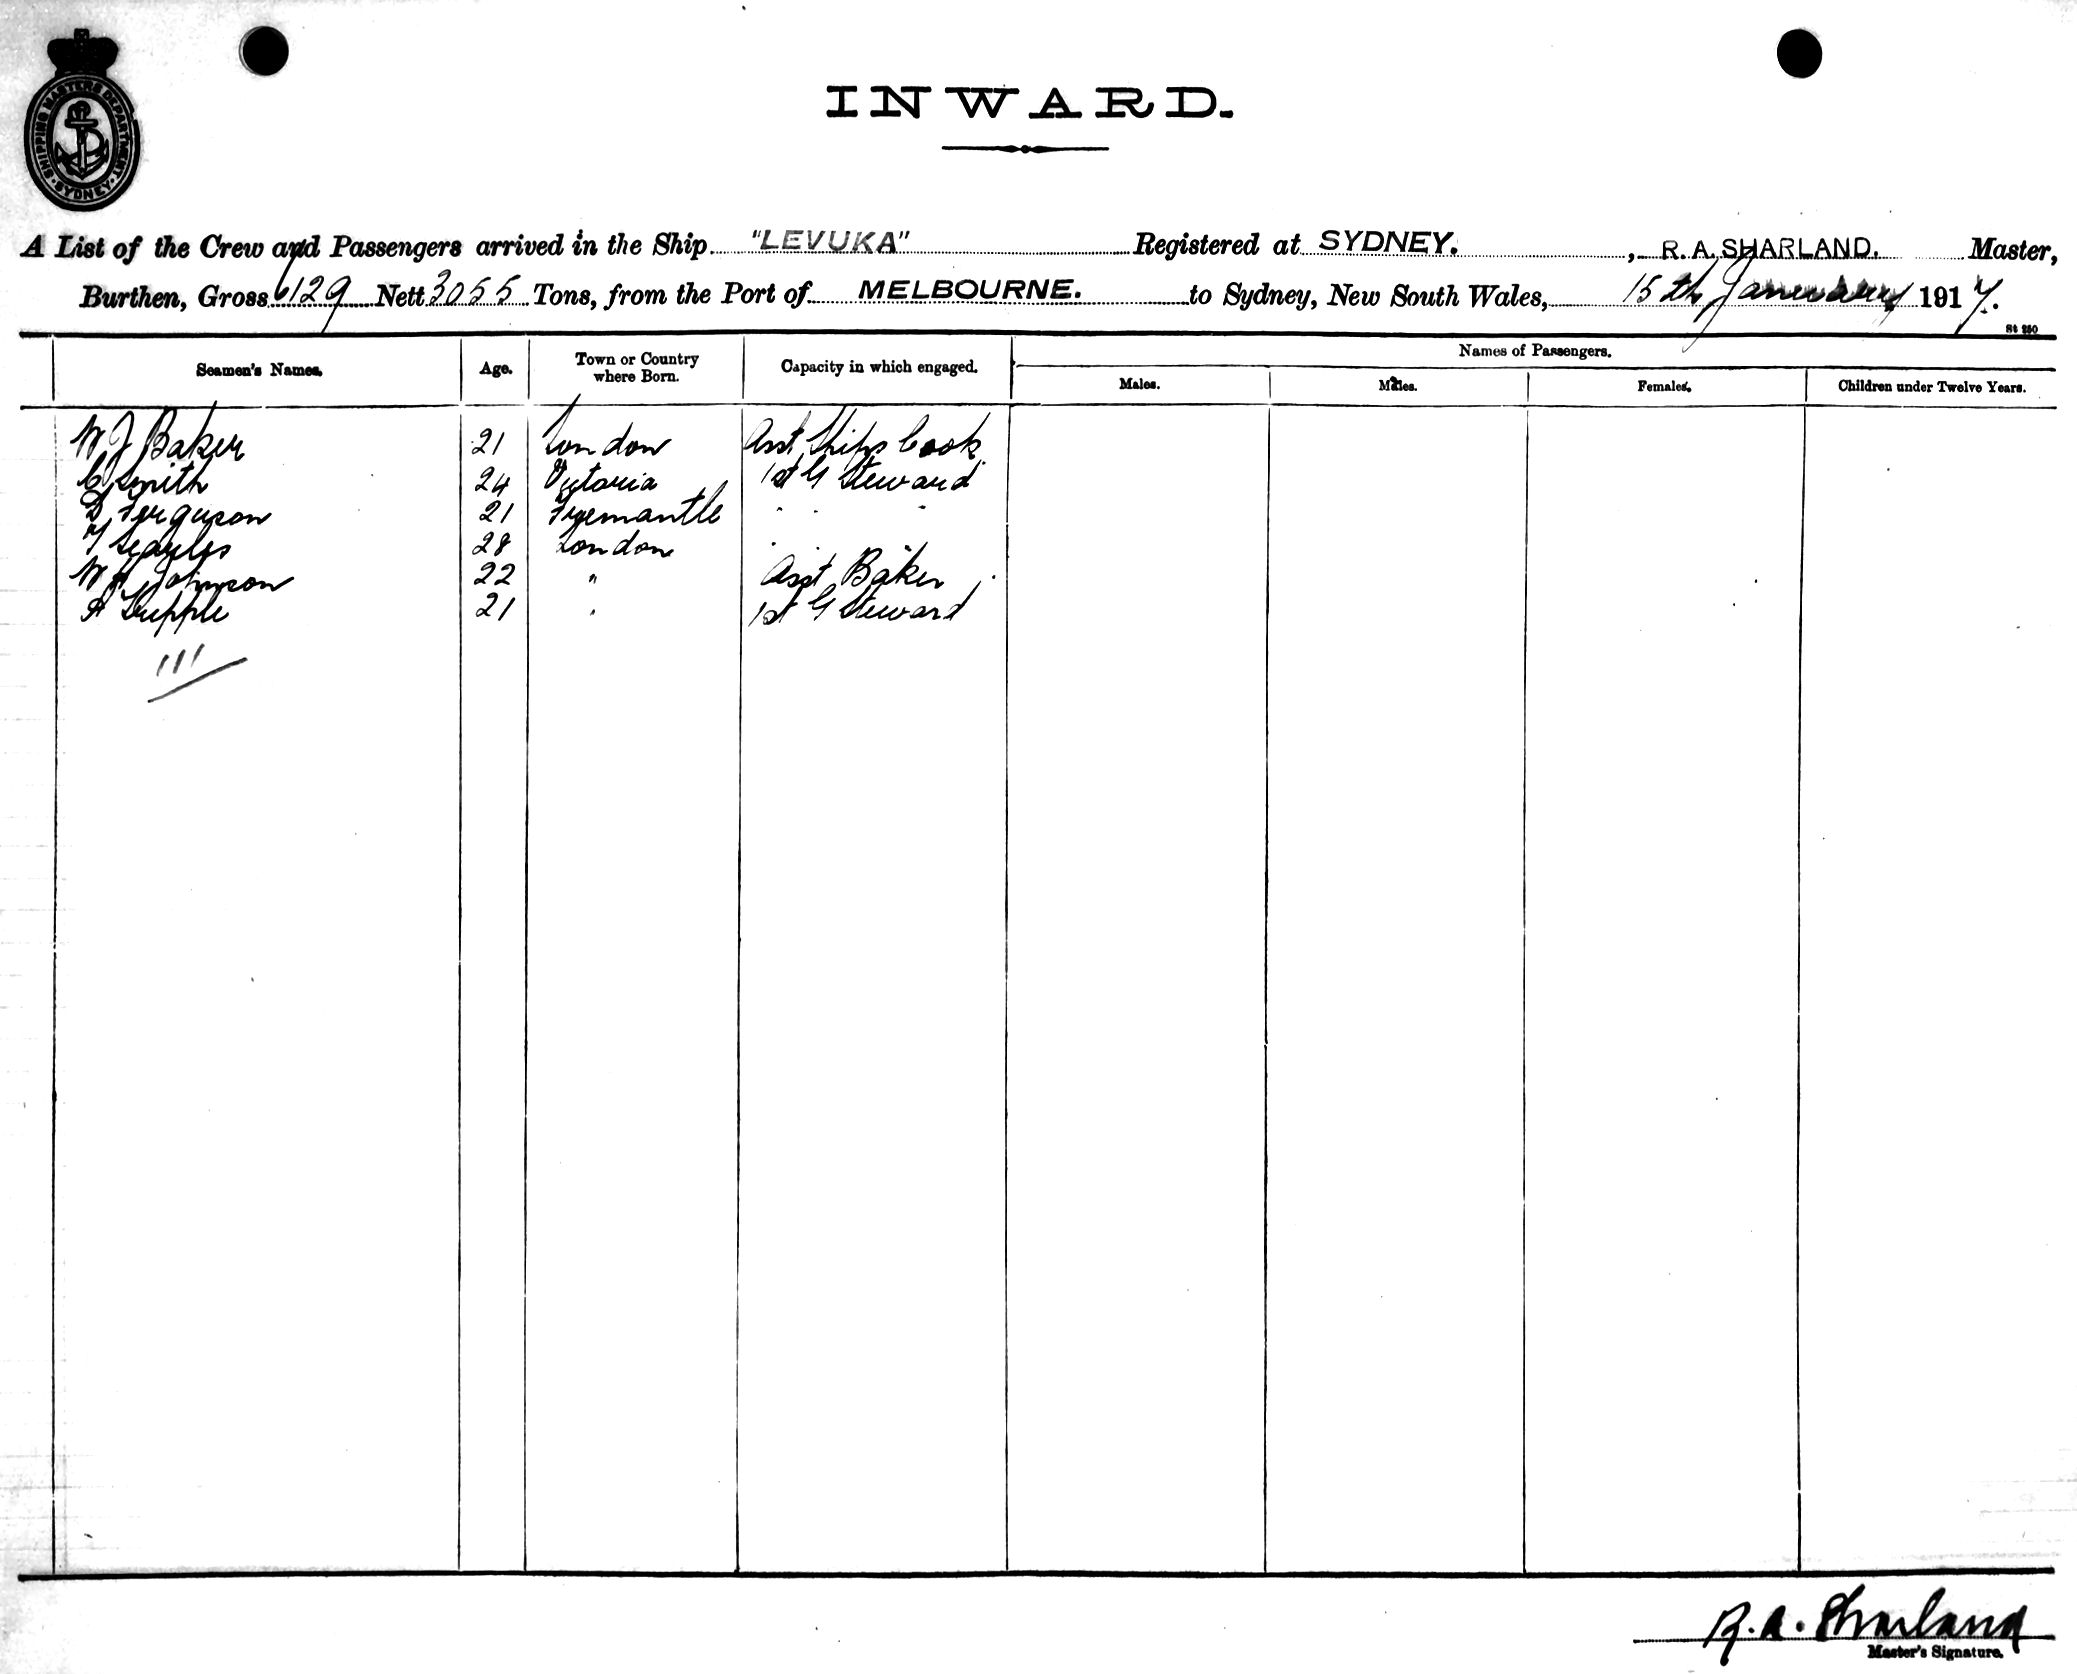 SHIPPING MASTERS DEPARTMENT · SYDNEY ·
INWARD.
A List of the Crew and Passengers arrived in the Ship "LEVUKA" Registered at SYDNEY. , R. A. SHARLAND. Master,
Burthen, Gross 6129 Nett 3055 Tons, from the Port of MELBOURNE. to Sydney, New South Wales, 15th January 1917.
St 250
Seamen's Names. Age. Town or Country where Born. Capacity in which engaged. Names of Passengers.
Males. Males. Females. Children under Twelve Years.
W J Baker 21 London Asst Ships Cook
C Smith 24 Victoria 1st G Steward
D Ferguson 21 Fremantle " " "
28 London " " "
W H Johnson 22 " Asst Baker
A Supple 21 " 1st G Steward
111
R. A. Sharland
Master's Signature.